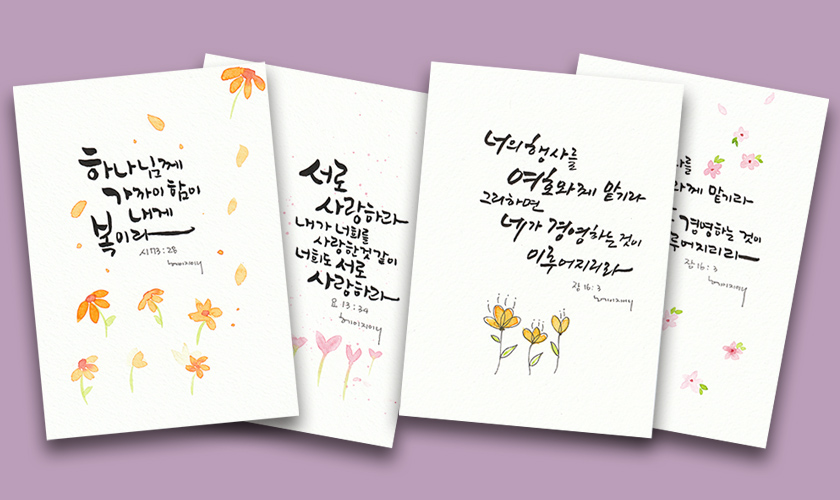 하나님께
가까이 함이
내게
복이라
시73:28
서로
사랑하라
내가 너희를
사랑한것 같이
너희도 서로
사랑하라
요 13:34
너의 행사를
여호와께 맡기라
그리하면
네가 경영하는것이
이루어지리라
잠16:3
맡기라
경영하는 것이
잠 16:3